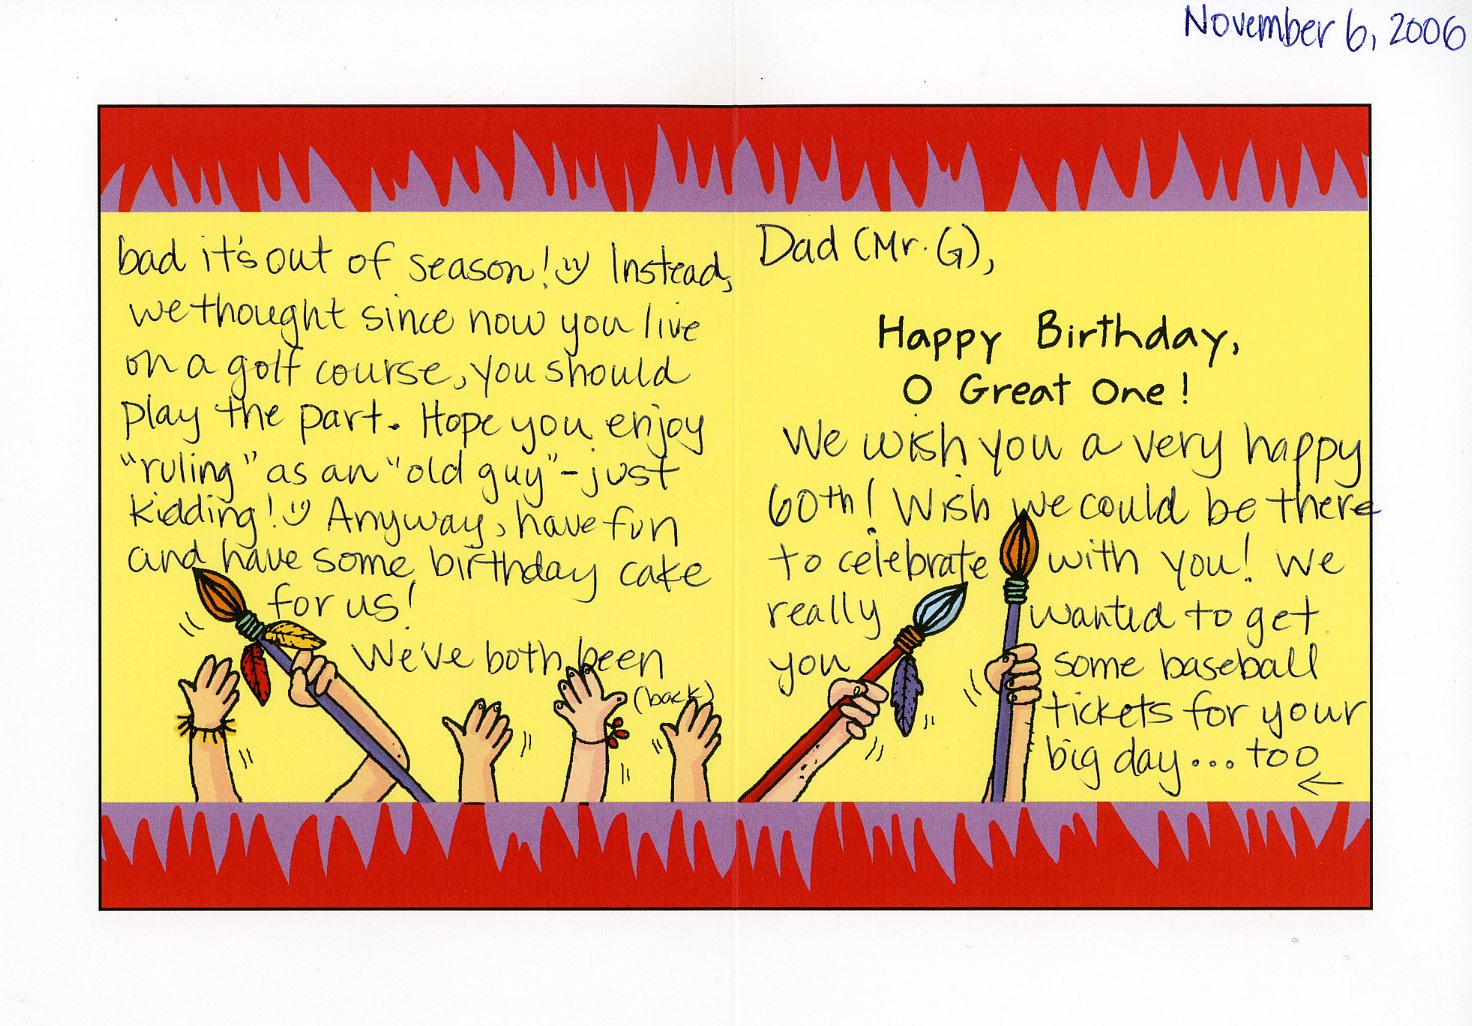 November 6, 2006
Dad (Mr. G),
Happy Birthday,
O Great One!
We wish you a very happy
60th! Wish we could be there
to celebrate with you! We
really wanted to get
you some baseball
tickets for your
big day... too
←
bad it's out of season! Instead,
we thought since now you live
on a golf course, you should
play the part. Hope you enjoy
"ruling" as an "old guy" - just
kidding! Anyway, have fun
and have some birthday cake
for us!
We've both been
(back)